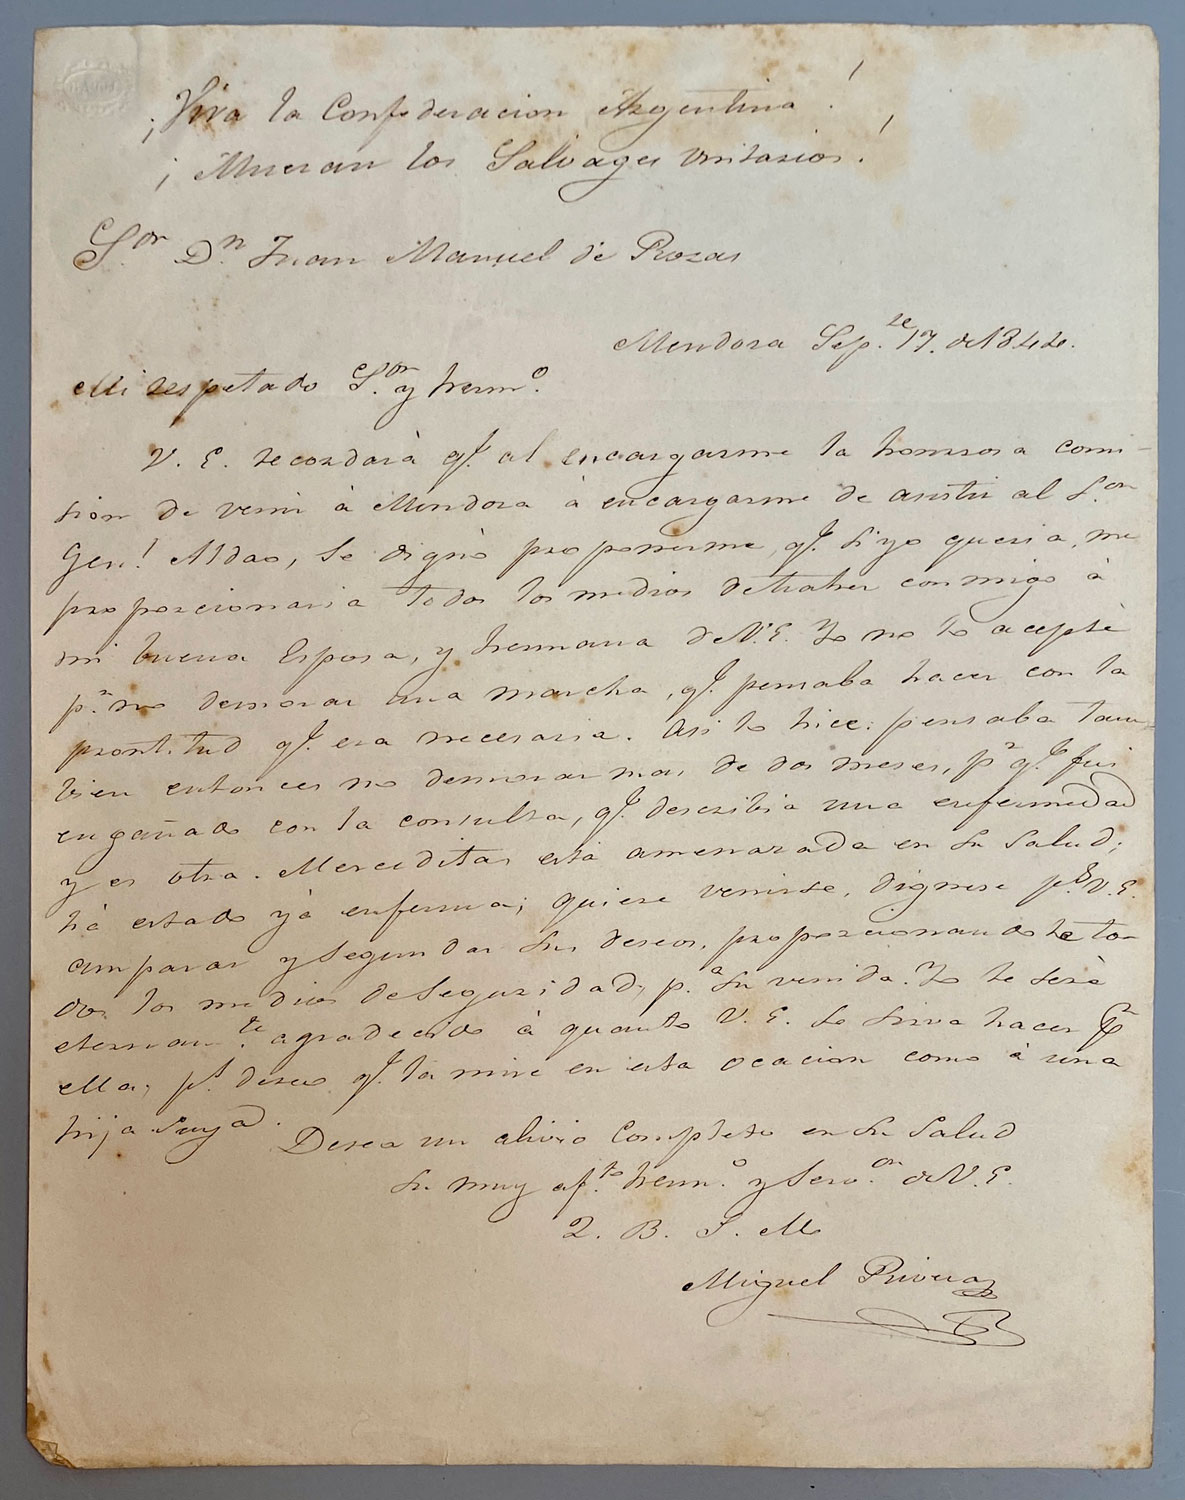 ¡Viva la Confederacion Argentina!
¡Mueran los Salvages Unitarios!
S.or D.n Juan Manuel de Rozas
Mendoza Sep.re 17. de 1844.
Mi respetado S.or y herm.o
V. E. recordarà q.e al encargarme la honrrosa comi-
sion de venir à Mendoza à encargarme de asistir al S.or
Gen.l Aldao, se dignò proponerme, q.e si yo queria, me
proporcionaria todos los medios de traher conmigo à
mi buena Esposa, y hermana de V. E. Yo no lo aceptè
p.r no demorar una marcha, q.e pensaba hacer con la
prontitud q.e era necesaria. Asi lo hice: pensaba tam-
bien entonces no demorar mas de dos meses, p.r q.e fui
engañado con la consulta, q.e describia una enfermedad
y es otra. Merceditas està amenazada en su salud;
hà estado yà enferma; quiere venirse, dignese p.s V. E.
amparar y segundar sus deseos, proporcionandole to-
dos los medios de seguridad, p.a su venida. Yo le serè
eternam.te agradecido à quanto V. E. se sirva hacer p.r
ella, p.s deseo q.e la mire en esta ocacion como à una
hija suya.
Desea un alivio completo en su salud
su muy af.to herm.o y serv.or de V. E.
Q. B. S. M
Miguel Rivera